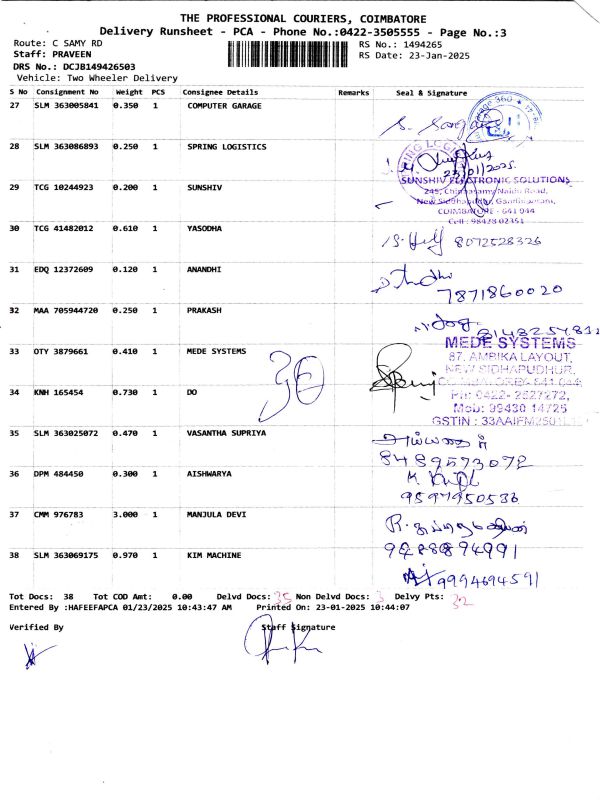 THE PROFESSIONAL COURIERS, COIMBATORE
Delivery Runsheet - PCA - Phone No.:0422-3505555 - Page No.:3
Route: C SAMY RD
RS No.: 1494265
Staff: PRAVEEN
RS Date: 23-Jan-2025
DRS No.: DCJB149426503
Vehicle: Two Wheeler Delivery
S No Consignment No Weight PCS Consignee Details Remarks Seal & Signature
27 SLM 363005841 0.350 1 COMPUTER GARAGE
28 SLM 363086893 0.250 1 SPRING LOGISTICS
23/01/2025
29 TCG 10244923 0.200 1 SUNSHIV
SUNSHIV ELECTRONIC SOLUTIONS
245, Chinnasamy Naidu Road,
New Siddhapudur, Gandhipuram,
COIMBATORE - 641 044
Cell : 98428 02351
30 TCG 41482012 0.610 1 YASODHA
8072528326
31 EDQ 12372609 0.120 1 ANANDHI
7871860020
32 MAA 705944720 0.250 1 PRAKASH
33 OTY 3879661 0.410 1 MEDE SYSTEMS
MEDE SYSTEMS
87, AMBIKA LAYOUT,
NEW SIDHAPUDHUR,
Ph: 0422- 2527272,
Mob: 99430 14725
GSTIN : 33AAIFM2501
30
34 KNH 165454 0.730 1 DO
35 SLM 363025072 0.470 1 VASANTHA SUPRIYA
8489573072
36 DPM 484450 0.300 1 AISHWARYA
9597950536
37 CMM 976783 3.000 1 MANJULA DEVI
38 SLM 363069175 0.970 1 KIM MACHINE
9994694591
Tot Docs: 38 Tot COD Amt: 0.00 Delvd Docs: 35 Non Delvd Docs: 3 Delvy Pts: 32
Entered By :HAFEEFAPCA 01/23/2025 10:43:47 AM Printed On: 23-01-2025 10:44:07
Verified By Staff Signature